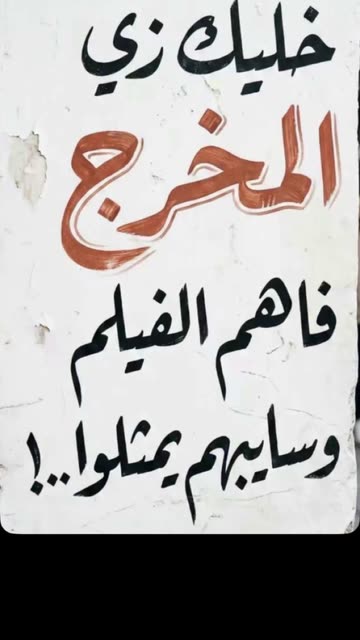 خليك زي
المخرج
فاهم الفيلم
وسايبهم يمثلوا..!